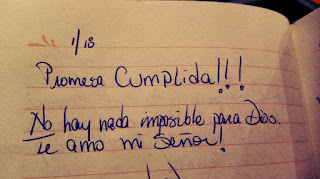 1/18
Promesa Cumplida!!!
No hay nada imposible para Dios.
Te amo mi Señor!